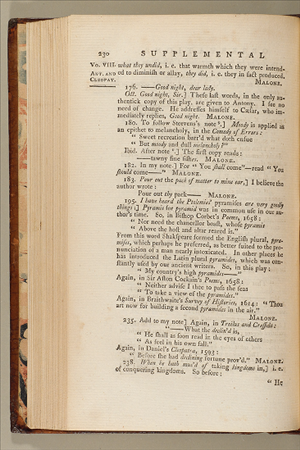 230 SUPPLEMENTAL
Vo. VIII. what they undid, i. e. that warmth which they were intend-
ANT. AND ed to diminish or allay, they did, i. e. they in fact produced.
CLEOPAT. MALONE.
176. ——Good night, dear lady.
Oct. Good night, Sir.] These last words, in the only au-
thentick copy of this play, are given to Antony. I see no
need of change. He addresses himself to Cæsar, who im-
mediately replies, Good night. MALONE.
180. To follow Steevens's note.] Moody is applied as
an epithet to melancholy, in the Comedy of Errors:
“ Sweet recreation barr'd what doth ensue
“ But moody and dull melancholy?”
Ibid. After note.] The first copy reads:
——tawny fine fishes. MALONE.
182. In my note.] For “ You shall come”—read “ You
should come——” MALONE.
183. Pour out the pack of matter to mine ear,] I believe the
author wrote:
Pour out thy pack—— MALONE.
195. I have heard the Ptolemies' pyramises are very goodly
things;] Pyramis for pyramid was in common use in our au-
thor's time. So, in Bishop Corbet's Poems, 1658:
“ Nor need the chancellor boast, whose pyramis
“ Above the host and altar reared is.”
From this word Shakspeare formed the English plural, pyra-
mises, which perhaps he preferred, as better suited to the pro-
nunciation of a man nearly intoxicated. In other places he
has introduced the Latin plural pyramides, which was con-
stantly used by our ancient writers. So, in this play:
“ My country's high pyramides——”
Again, in Sir Aston Cockain's Poems, 1658:
“ Neither advise I thee to pass the seas
“ To take a view of the pyramides.”
Again, in Braithwaite's Survey of Histories, 1614: “ Thou
art now for building a second pyramides in the air.”
MALONE.
235. Add to my note] Again, in Troilus and Cressida:
“ ——What the declin'd is,
“ He shall as soon read in the eyes of others
“ As feel in his own fall.”
Again, in Daniel's Cleopatra, 1593:
“ Before she had declining fortune prov'd.” MALONE.
238. When he hath mus'd of taking kingdoms in,] i. e.
of conquering kingdoms. So before:
“ He